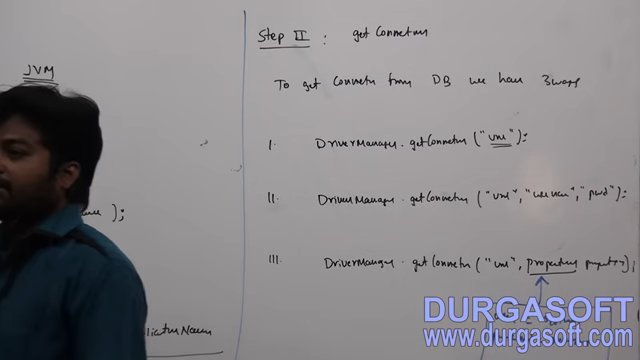 JVM
);
Step II : get Connection
To get Connectn from DB we have 3 ways
I. DriverManager.getConnectn ("url");
II. DriverManager.getConnectn ("url", "username", "pwd");
III. DriverManager.getConnectn ("url", properties property);
DURGASOFT
www.durgasoft.com